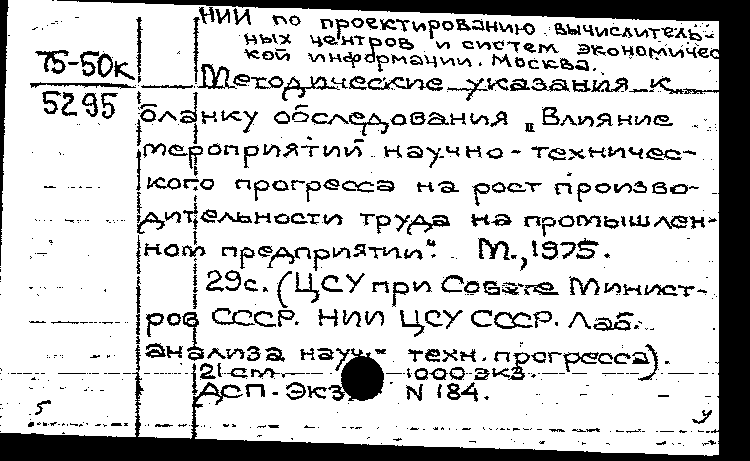 НИИ по проектированию вычислитель-
ных центров и систем экономичес
кой информации. Москва.
75-50к
5295
Методические указания к
бланку обследования „Влияние
мероприятий научно-техничес-
кого прогресса на рост произво-
дительности труда на промышлен-
ном предприятии“. М., 1975.
29с. (ЦСУ при Совете Минист-
ров СССР. НИИ ЦСУ СССР. Лаб.
анализа науч.- техн. прогресса).
21 cm. 1000 экз.
ДСП. Экз. N 184.
5 У